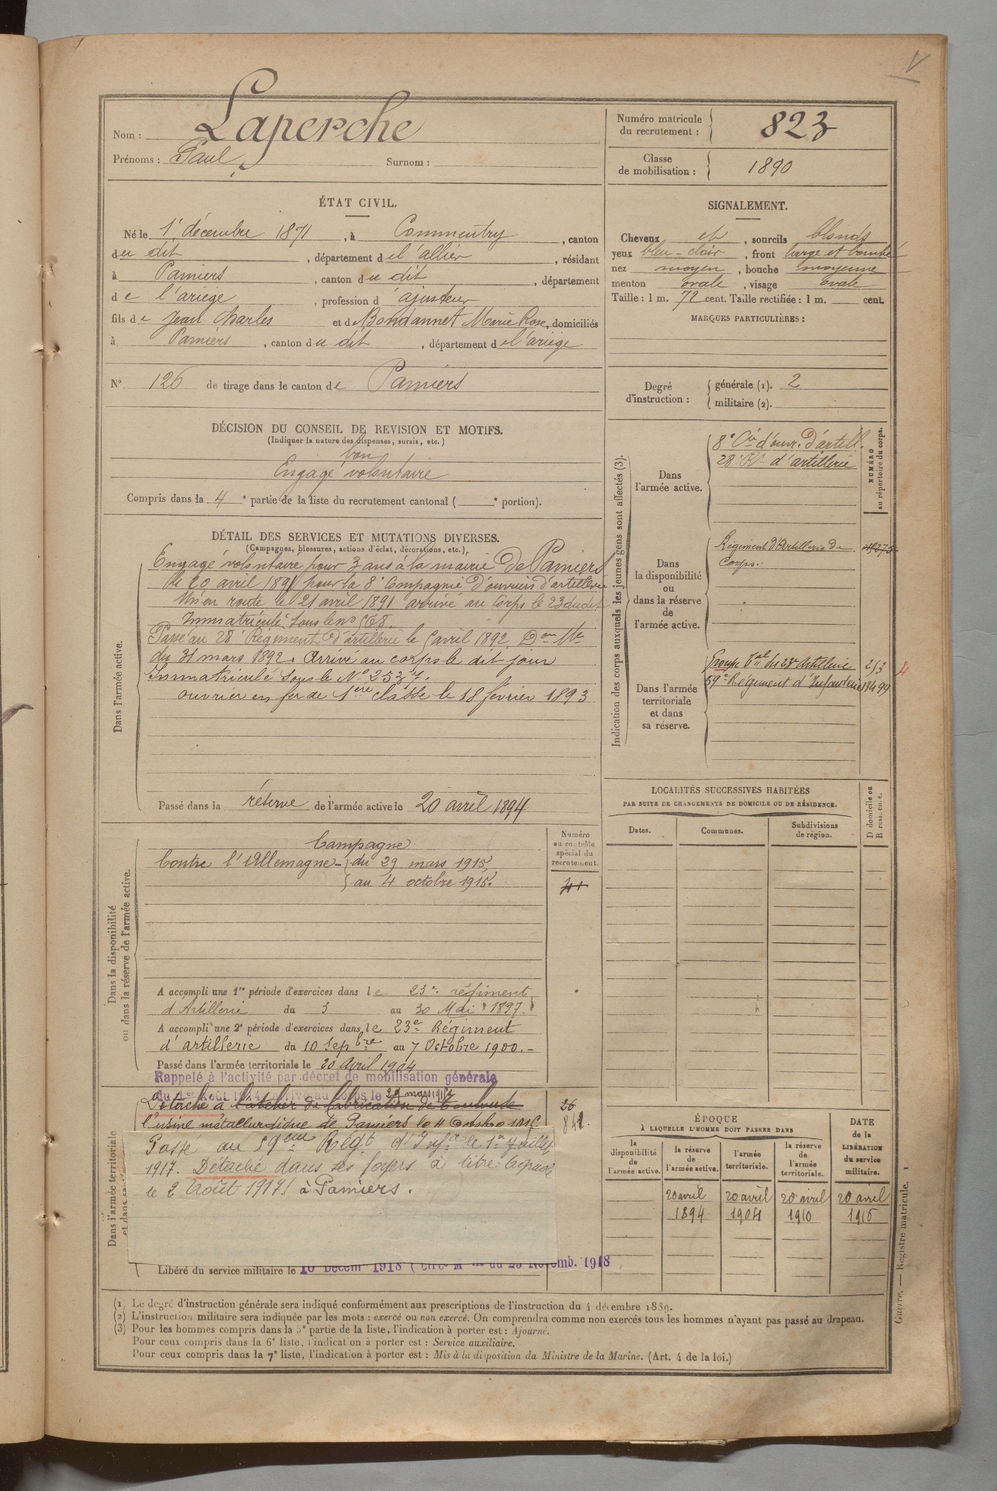 V
Nom : Laperche
Prénoms : Paul, Surnom :
Numéro matricule du recrutement : 823
Classe de mobilisation : 1890
ÉTAT CIVIL.
Né le 1er décembre 1871, à Commentry, canton
du dit, département de l'allier, résidant
à Pamiers, canton du dit, département
de l'ariège, profession d ajusteur
fils de Jean Charles et d Bondannet Marie Rose, domiciliés
à Pamiers, canton du dit, département de l'ariège
N° 126 de tirage dans le canton de Pamiers
SIGNALEMENT.
Cheveux et, sourcils blonds
yeux bleu-clair, front large et bombé
nez moyen, bouche moyenne
menton ovale, visage ovale
Taille : 1 m. 72 cent. Taille rectifiée : 1 m. cent.
MARQUES PARTICULIÈRES :
Degré d'instruction : générale (1). 2
militaire (2).
DÉCISION DU CONSEIL DE REVISION ET MOTIFS.
(Indiquer la nature des dispenses, sursis, etc.)
bon
Engagé volontaire
Compris dans la 4e partie de la liste du recrutement cantonal ( e portion).
DÉTAIL DES SERVICES ET MUTATIONS DIVERSES.
(Campagnes, blessures, actions d'éclat, décorations, etc.),
Dans l'armée active.
Engagé volontaire pour 3 ans à la mairie de Pamiers
le 20 avril 1891 pour la 8e Compagnie d'ouvriers d'artillerie
Mis en route le 21 avril 1891 arrivé au Corps le 23 dudit
Immatriculé sous le no 868.
Passé au 28e Régiment d'artillerie le avril 1892. Don Mle
du 31 mars 1892. Arrivé au corps le dit jour
Immatriculé sous le No 2537.
ouvrier en fer de 1ère classe le 18 février 1893
Passé dans la réserve de l'armée active le 20 avril 1894
Indication des corps auxquels les jeunes gens sont affectés (3).
NUMÉRO au répertoire du corps.
Dans l'armée active.
8e Cie d'ouv. d'artill.
28e Rt d'artillerie
Dans la disponibilité ou dans la réserve de l'armée active.
Régiment d'Artillerie de
Corps.
Dans l'armée territoriale et dans sa réserve.
Groupe Tal du 23e Artillerie 253
59e Régiment d'Infanterie 19499
LOCALITÉS SUCCESSIVES HABITÉES
PAR SUITE DE CHANGEMENTS DE DOMICILE OU DE RÉSIDENCE.
D domicile ou R résidence.
Dates. Communes. Subdivisions de région.
Dans la disponibilité ou dans la réserve de l'armée active.
Numéro au contrôle spécial du recrutement.
Campagne
Contre l'Allemagne du 29 mars 1915,
au 4 octobre 1915.
A accompli une 1re période d'exercices dans le 23e régiment
d'Artillerie du 3 au 30 Mai 1897.
A accompli une 2e période d'exercices dans le 23e Régiment
d'artillerie du 10 Sepbre au 7 Octobre 1900.
Passé dans l'armée territoriale le 20 Avril 1904
Rappelé à l'activité par décret de mobilisation générale
Dans l'armée territoriale
Détaché à l'atelier de fabrication de Toulouse
l'usine métallurgique de Pamiers le 4 Octobre 1915
Passé au 59eme Régt d'Infie le 1er Juillet
1917. Détaché dans ses foyers à titre agricole
le 2 Août 1917 à Pamiers.
Libéré du service militaire le 10 Décem 1918
ÉPOQUE
À LAQUELLE L'HOMME DOIT PASSER DANS
DATE de la LIBÉRATION du service militaire.
la disponibilité de l'armée active.
la réserve de l'armée active.
l'armée territoriale.
la réserve de l'armée territoriale.
20 avril 1894
20 avril 1904
20 avril 1910
20 avril 1916
(1) Le degré d'instruction générale sera indiqué conformément aux prescriptions de l'instruction du 4 décembre 1889.
(2) L'instruction militaire sera indiquée par les mots : exercé ou non exercé. On comprendra comme non exercés tous les hommes n'ayant pas passé au drapeau.
(3) Pour les hommes compris dans la 5e partie de la liste, l'indication à porter est : Ajourné.
Pour ceux compris dans la 6e liste, l'indication à porter est : Service auxiliaire.
Pour ceux compris dans la 7e liste, l'indication à porter est : Mis à la disposition du Ministre de la Marine. (Art. 4 de la loi.)
Guerre. — Registre matricule.